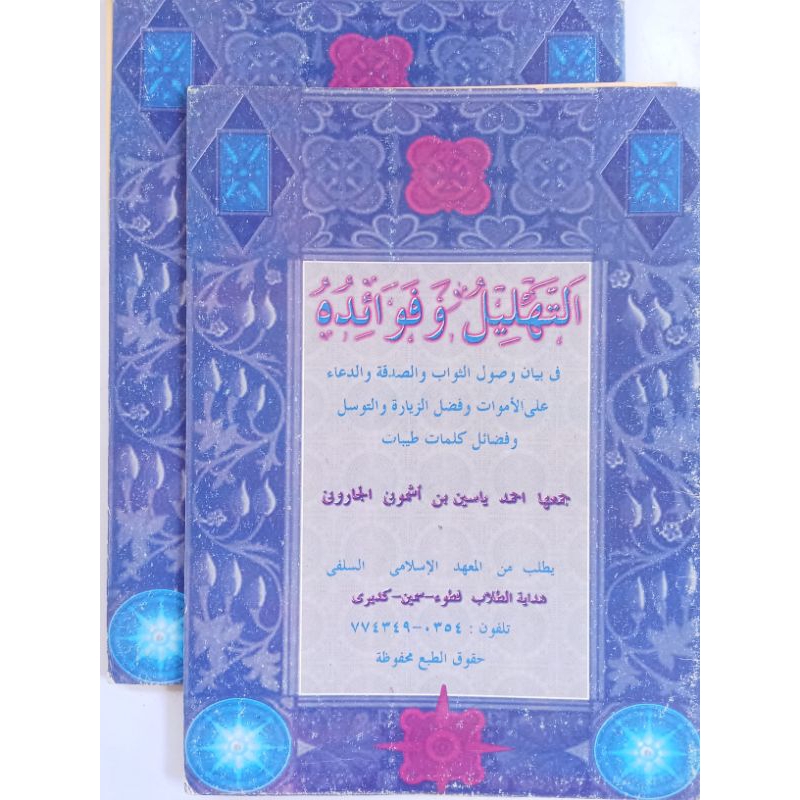 التَهْلِيْلُ وَفَوَائِدُهُ
فى بيان وصول الثواب والصدقة والدعاء
على الأموات وفضل الزيارة والتوسل
وفضائل كلمات طيبات
جمعها احمد ياسين بن أشمونى الجارونى
يطلب من المعهد الإسلامى السلفى
هداية الطلاب فطوء-سمين-كديرى
تلفون : ٠٣٥٤-٧٧٤٣٤٩
حقوق الطبع محفوظة